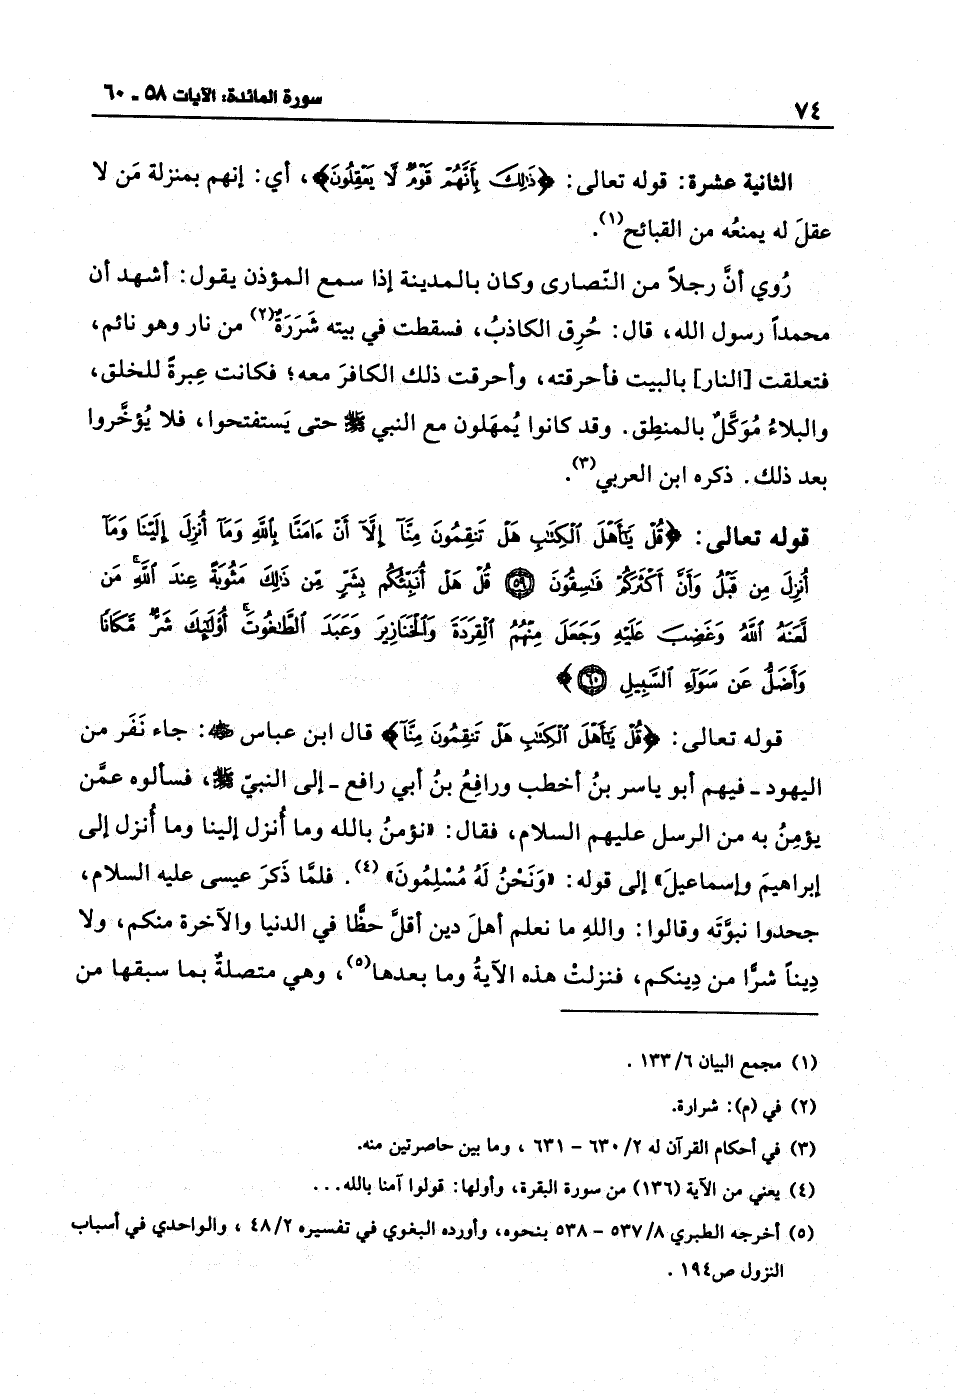 ٧٤
سورة المائدة: الآيات ٥٨ ـ ٦٠
الثانية عشرة: قوله تعالى: ﴿ذَٰلِكَ بِأَنَّهُمْ قَوْمٌ لَّا يَعْقِلُونَ﴾، أي: إنهم بمنزلة مَن لا
عقلَ له يمنعُه من القبائح(١).
رُوي أنَّ رجلاً من النّصارى وكان بالمدينة إذا سمع المؤذن يقول: أشهد أن
محمداً رسول الله، قال: حُرِق الكاذبُ، فسقطت في بيته شَرَرَةٌ(٢) من نار وهو نائم،
فتعلقت [النار] بالبيت فأحرقته، وأحرقت ذلك الكافرَ معه؛ فكانت عِبرةً للخلق،
والبلاءُ مُوَكَّلٌ بالمنطِق. وقد كانوا يُمهَلون مع النبي ﷺ حتى يَستفتحوا، فلا يُؤخَّروا
بعد ذلك. ذكره ابن العربي(٣).
قوله تعالى: ﴿قُلْ يَٰٓأَهْلَ ٱلْكِتَٰبِ هَلْ تَنقِمُونَ مِنَّآ إِلَّآ أَنْ ءَامَنَّا بِٱللَّهِ وَمَآ أُنزِلَ إِلَيْنَا وَمَآ
أُنزِلَ مِن قَبْلُ وَأَنَّ أَكْثَرَكُمْ فَٰسِقُونَ ۝٥٩ قُلْ هَلْ أُنَبِّئُكُم بِشَرٍّ مِّن ذَٰلِكَ مَثُوبَةً عِندَ ٱللَّهِ ۚ مَن
لَّعَنَهُ ٱللَّهُ وَغَضِبَ عَلَيْهِ وَجَعَلَ مِنْهُمُ ٱلْقِرَدَةَ وَٱلْخَنَازِيرَ وَعَبَدَ ٱلطَّٰغُوتَ ۚ أُو۟لَٰٓئِكَ شَرٌّ مَّكَانًا
وَأَضَلُّ عَن سَوَآءِ ٱلسَّبِيلِ ۝٦٠﴾
قوله تعالى: ﴿قُلْ يَٰٓأَهْلَ ٱلْكِتَٰبِ هَلْ تَنقِمُونَ مِنَّآ﴾ قال ابن عباس ﵄: جاء نَفَر من
اليهود ـ فيهم أبو ياسر بنُ أخطب ورافِعُ بنُ أبي رافع ـ إلى النبيّ ﷺ، فسألوه عمَّن
يؤمِنُ به من الرسل عليهم السلام، فقال: «نؤمنُ بالله وما أُنزل إلينا وما أُنزل إلى
إبراهيمَ وإسماعيلَ» إلى قوله: «وَنَحْنُ لَهُ مُسْلِمُونَ»(٤). فلمَّا ذَكرَ عيسى عليه السلام،
جحدوا نبوَّتَه وقالوا: واللهِ ما نعلم أهلَ دين أقلَّ حظًّا في الدنيا والآخرة منكم، ولا
دِيناً شرًّا من دِينكم، فنزلتْ هذه الآيةُ وما بعدها(٥)، وهي متصلةٌ بما سبقها من
(١) مجمع البيان ٦/ ١٣٣ .
(٢) في (م): شرارة.
(٣) في أحكام القرآن له ٢/ ٦٣٠ – ٦٣١ ، وما بين حاصرتين منه.
(٤) يعني من الآية (١٣٦) من سورة البقرة، وأولها: قولوا آمنا بالله...
(٥) أخرجه الطبري ٨/ ٥٣٧ – ٥٣٨ بنحوه، وأورده البغوي في تفسيره ٢/ ٤٨ ، والواحدي في أسباب
النزول ص١٩٤ .